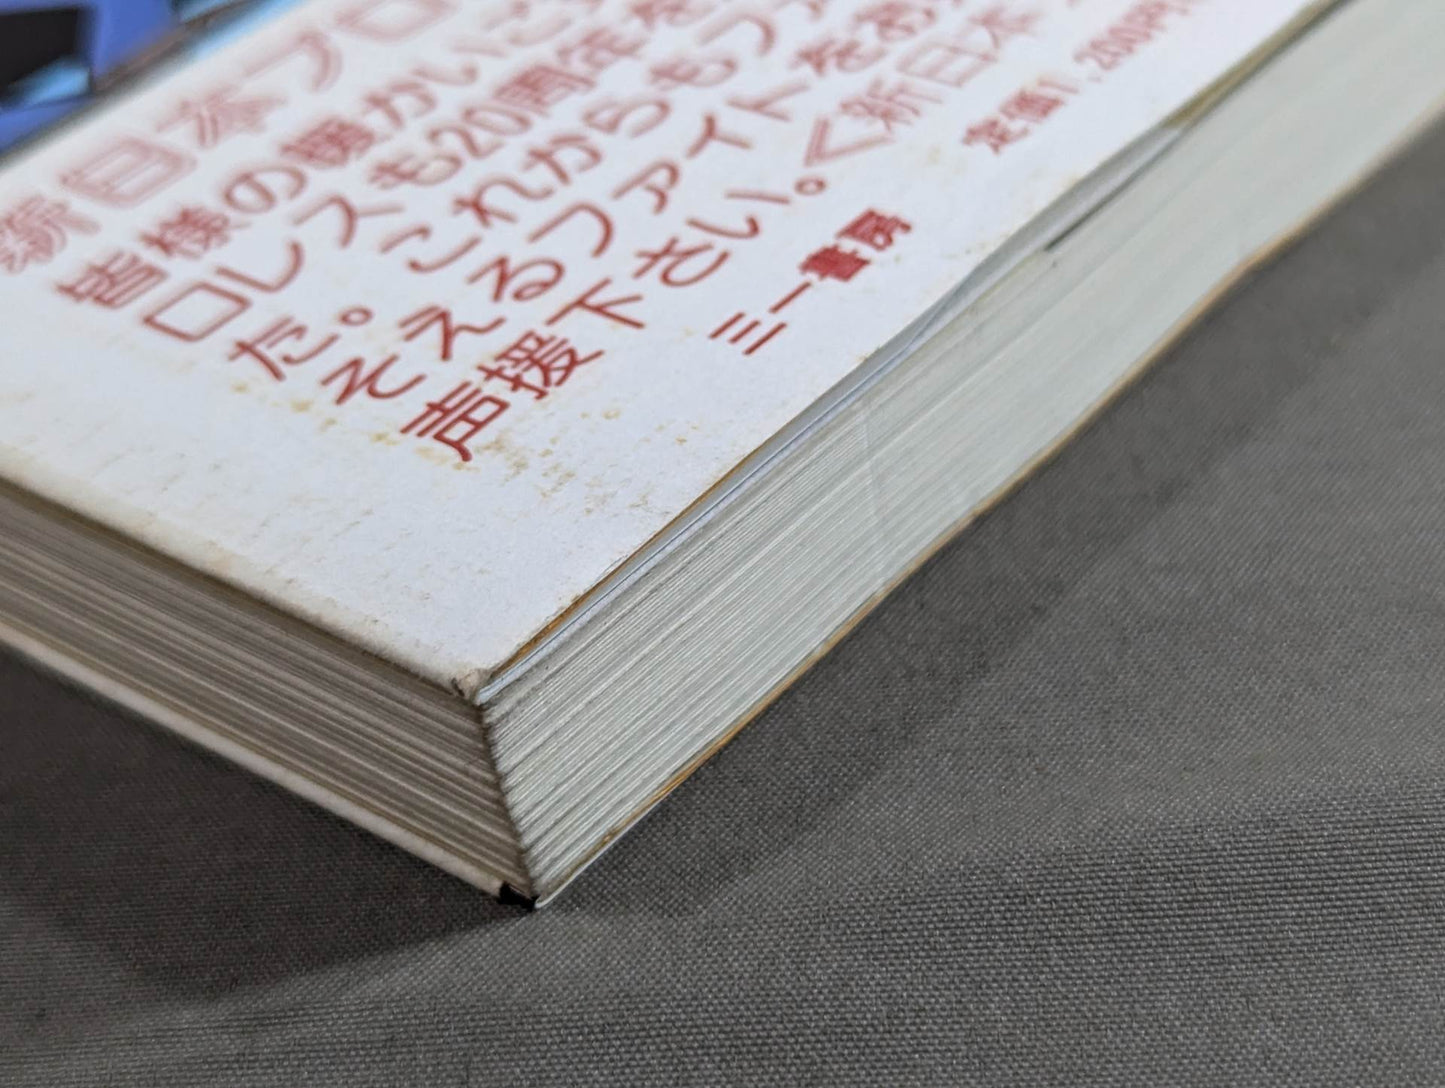 新日本プロ
皆様の暖かいご
ロレスも20周年を
た。これからもファ
そえるファイトをお
声援下さい。<新日本
三一書房
定価1,200円